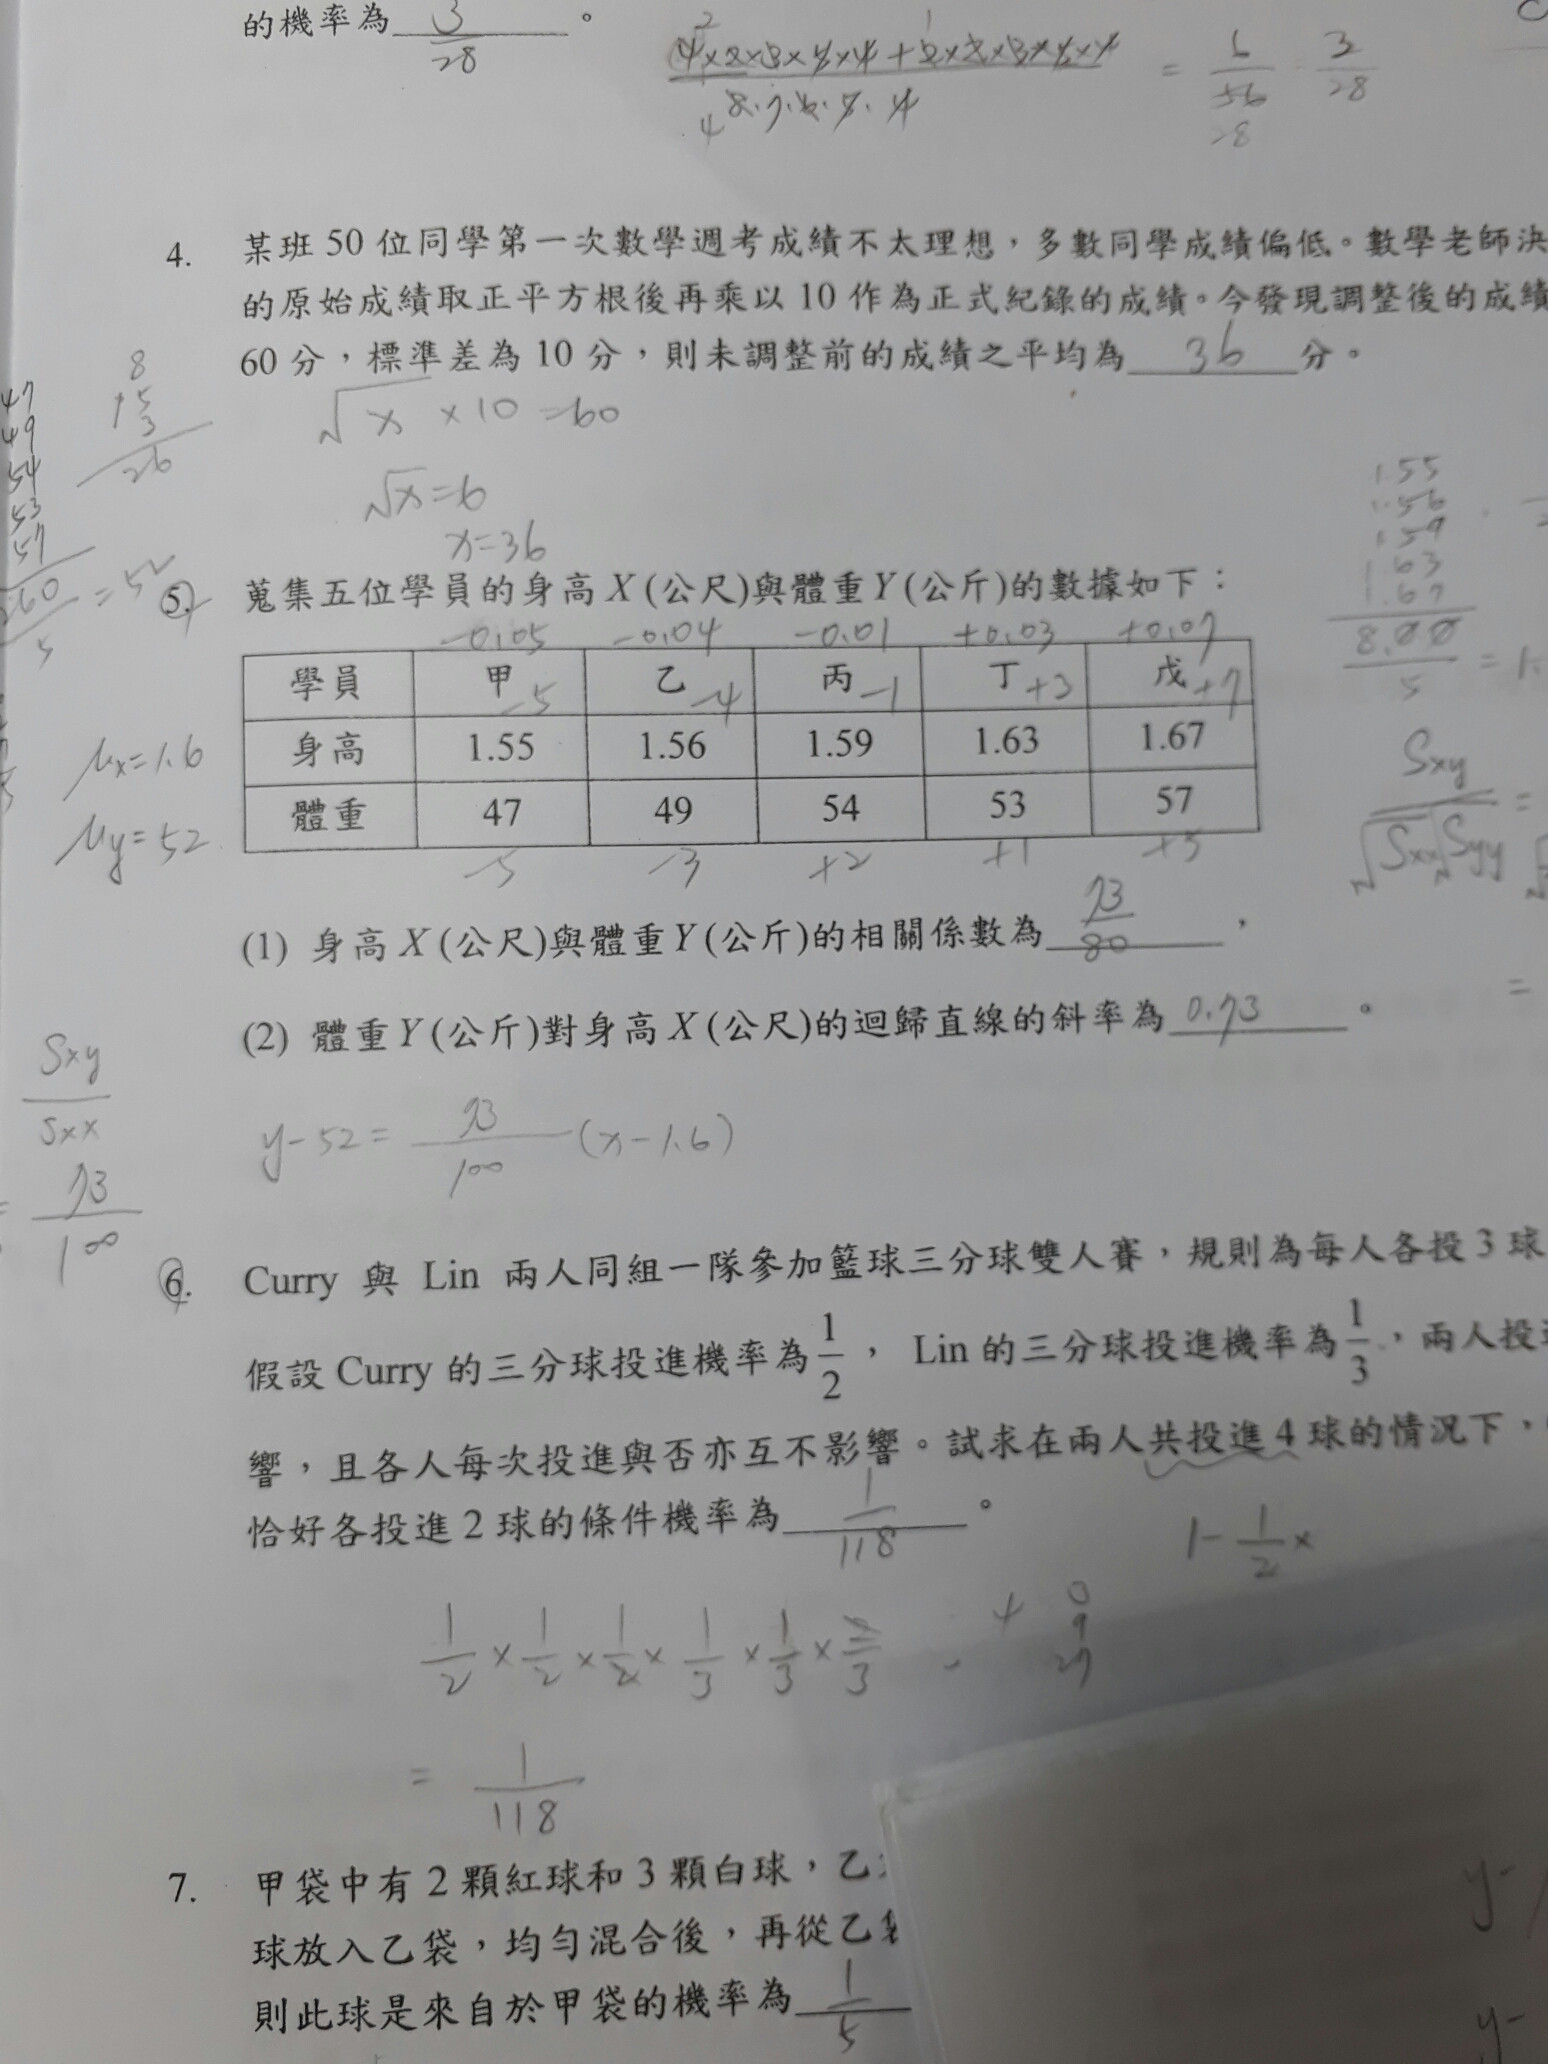 的機率為 3/28 。
4×2×3×4×4+2×2×3×4×4 / 8.7.6.5.4 = 6/56 28 = 3/28
4. 某班50位同學第一次數學週考成績不太理想，多數同學成績偏低。數學老師決
的原始成績取正平方根後再乘以10作為正式紀錄的成績。今發現調整後的成績
60分，標準差為10分，則未調整前的成績之平均為 36 分。
√x ×10=60
√x=6
x=36
8
+5
3
26
47
49
54
53
57
260/5 = 52
1.55
1.56
1.59
1.63
1.67
8.00/5 = 1.
5. 蒐集五位學員的身高X(公尺)與體重Y(公斤)的數據如下：
-0.05 -0.04 -0.01 +0.03 +0.07
學員 甲 乙 丙 丁 戊
-5 -4 -1 +3 +7
身高 1.55 1.56 1.59 1.63 1.67
體重 47 49 54 53 57
-5 -3 +2 +1 +5
μx=1.6
μy=52
Sxy/√Sxx√Syy =
(1) 身高X(公尺)與體重Y(公斤)的相關係數為 73/80 ，
(2) 體重Y(公斤)對身高X(公尺)的迴歸直線的斜率為 0.73 。
Sxy/Sxx
= 73/100
y-52= 73/100 (x-1.6)
6. Curry 與 Lin 兩人同組一隊參加籃球三分球雙人賽，規則為每人各投3球
假設Curry的三分球投進機率為1/2， Lin的三分球投進機率為1/3，兩人投進
響，且各人每次投進與否亦互不影響。試求在兩人共投進4球的情況下，
恰好各投進2球的條件機率為 1/118 。
1-1/2×
1/2×1/2×1/2×1/3×1/3×2/3
= 1/118
7. 甲袋中有2顆紅球和3顆白球，乙
球放入乙袋，均勻混合後，再從乙袋
則此球是來自於甲袋的機率為 1/5
y-
y-